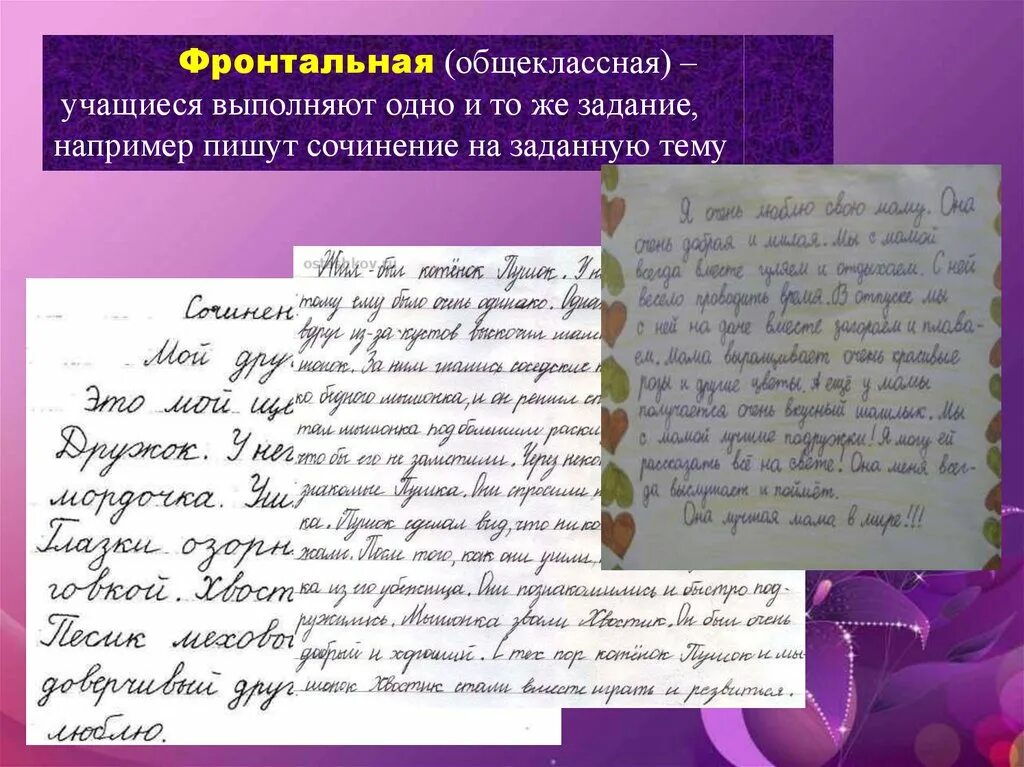 Фронтальная (общеклассная) –
учащиеся выполняют одно и то же задание,
например пишут сочинение на заданную тему
Сочинен
Мой дру
Это мой ще
Дружок. У нег
мордочка. Уши
Глазки озорн
говкой. Хвост
Песик мехово
доверчивый друг
люблю.
Жил-был котёнок Пушок. У н
тому ему было очень одиноко. Одна
вдруг из-за кустов выскочил
шонок. За ним гнались соседские
ко бедного мышонка, и он решил сп
тал мышонка под большим раски
что бы его не заметили. Через неко
знакомые Пушка. Они спросили
ка. Пушок сделал вид, что ни ко
жали. Песл того, как они ушли,
ка из его убежища. Они познакомились и быстро под-
ружились. Мышонка звали Хвостик. Он был очень
добрый и хороший. С тех пор котёнок Пушок и мы
шонок Хвостик стали вместе играть и резвиться.
Я очень люблю свою маму. Она
очень добрая и милая. Мы с мамой
всегда вместе гуляем и отдыхаем. С ней
весело проводить время. В отпуске мы
с ней на даче вместе загораем и плава-
ем. Мама выращивает очень красивые
розы и другие цветы. А ещё у мамы
получается очень вкусный шашлык. Мы
с мамой лучшие подружки! Я могу ей
рассказать всё на свете. Она меня всег-
да выслушает и поймёт.
Она лучшая мама в мире!!!